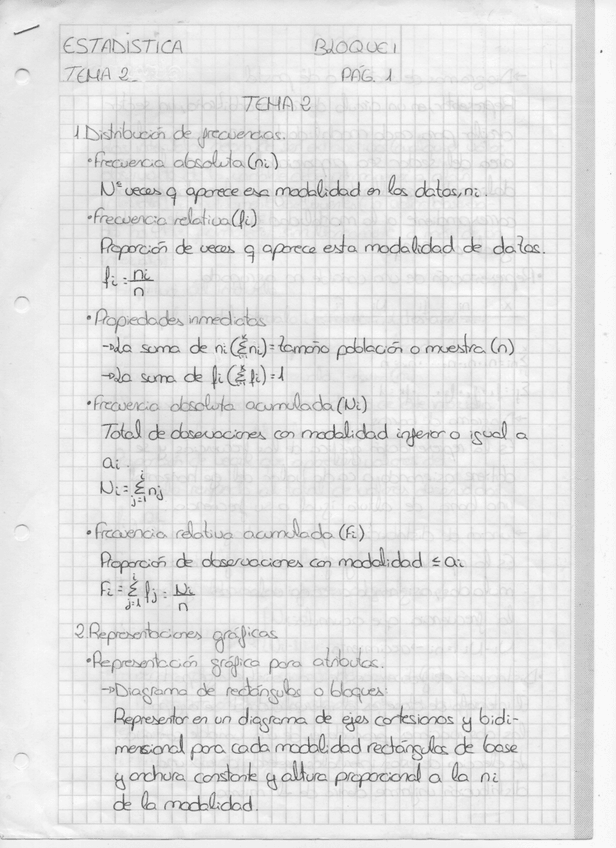 ESTADÍSTICA BLOQUE 1
TEMA 2. PÁG. 1
TEMA 2
1. Distribución de frecuencias.
• Frecuencia absoluta (ni)
Nº veces q aparece esa modalidad en los datos, ni.
• Frecuencia relativa (fi)
Proporción de veces q aparece esta modalidad de datos.
fi = ni/n
• Propiedades inmediatas
→ La suma de ni (Σni) = tamaño población o muestra (n)
→ La suma de fi (Σfi) = 1
• Frecuencia absoluta acumulada (Ni)
Total de observaciones con modalidad inferior o igual a
ai.
Ni = Σ(j=1, i) nj
• Frecuencia relativa acumulada (Fi)
Proporción de observaciones con modalidad ≤ ai
Fi = Σ(j=1, i) fj = Ni/n
2. Representaciones gráficas
• Representación gráfica para atributos.
→ Diagrama de rectángulos o bloques:
Representar en un diagrama de ejes cartesianos y bidi-
mensional para cada modalidad rectángulos de base
y anchura constante y altura proporcional a la ni
de la modalidad.